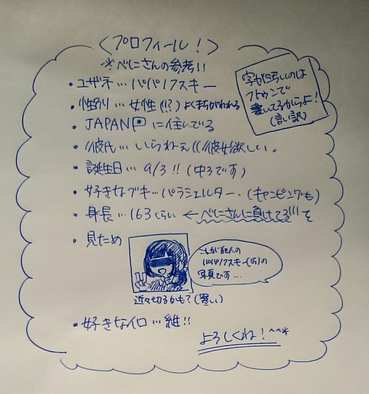 〈プロフィール！〉
※べにさんの参考!!
・ユザネ…パパパノフスキー
・性別…女性(!?)よくまちがわれる
・JAPANに住んでいる
・彼氏…いらねぇ((彼女欲しい。
・誕生日…9/3!!(中3です)
・好きなブキ…パラシェルター.(キャンピングも)
・身長…163くらい ←べにさんに負けてる!!!
・見ため
近々切るかも？(暑い)
・好きなイロ…紺!!
よろしくね！^^*
字が汚いのは
フトンで
書いてるからよ！
(言い訳)
写真です…